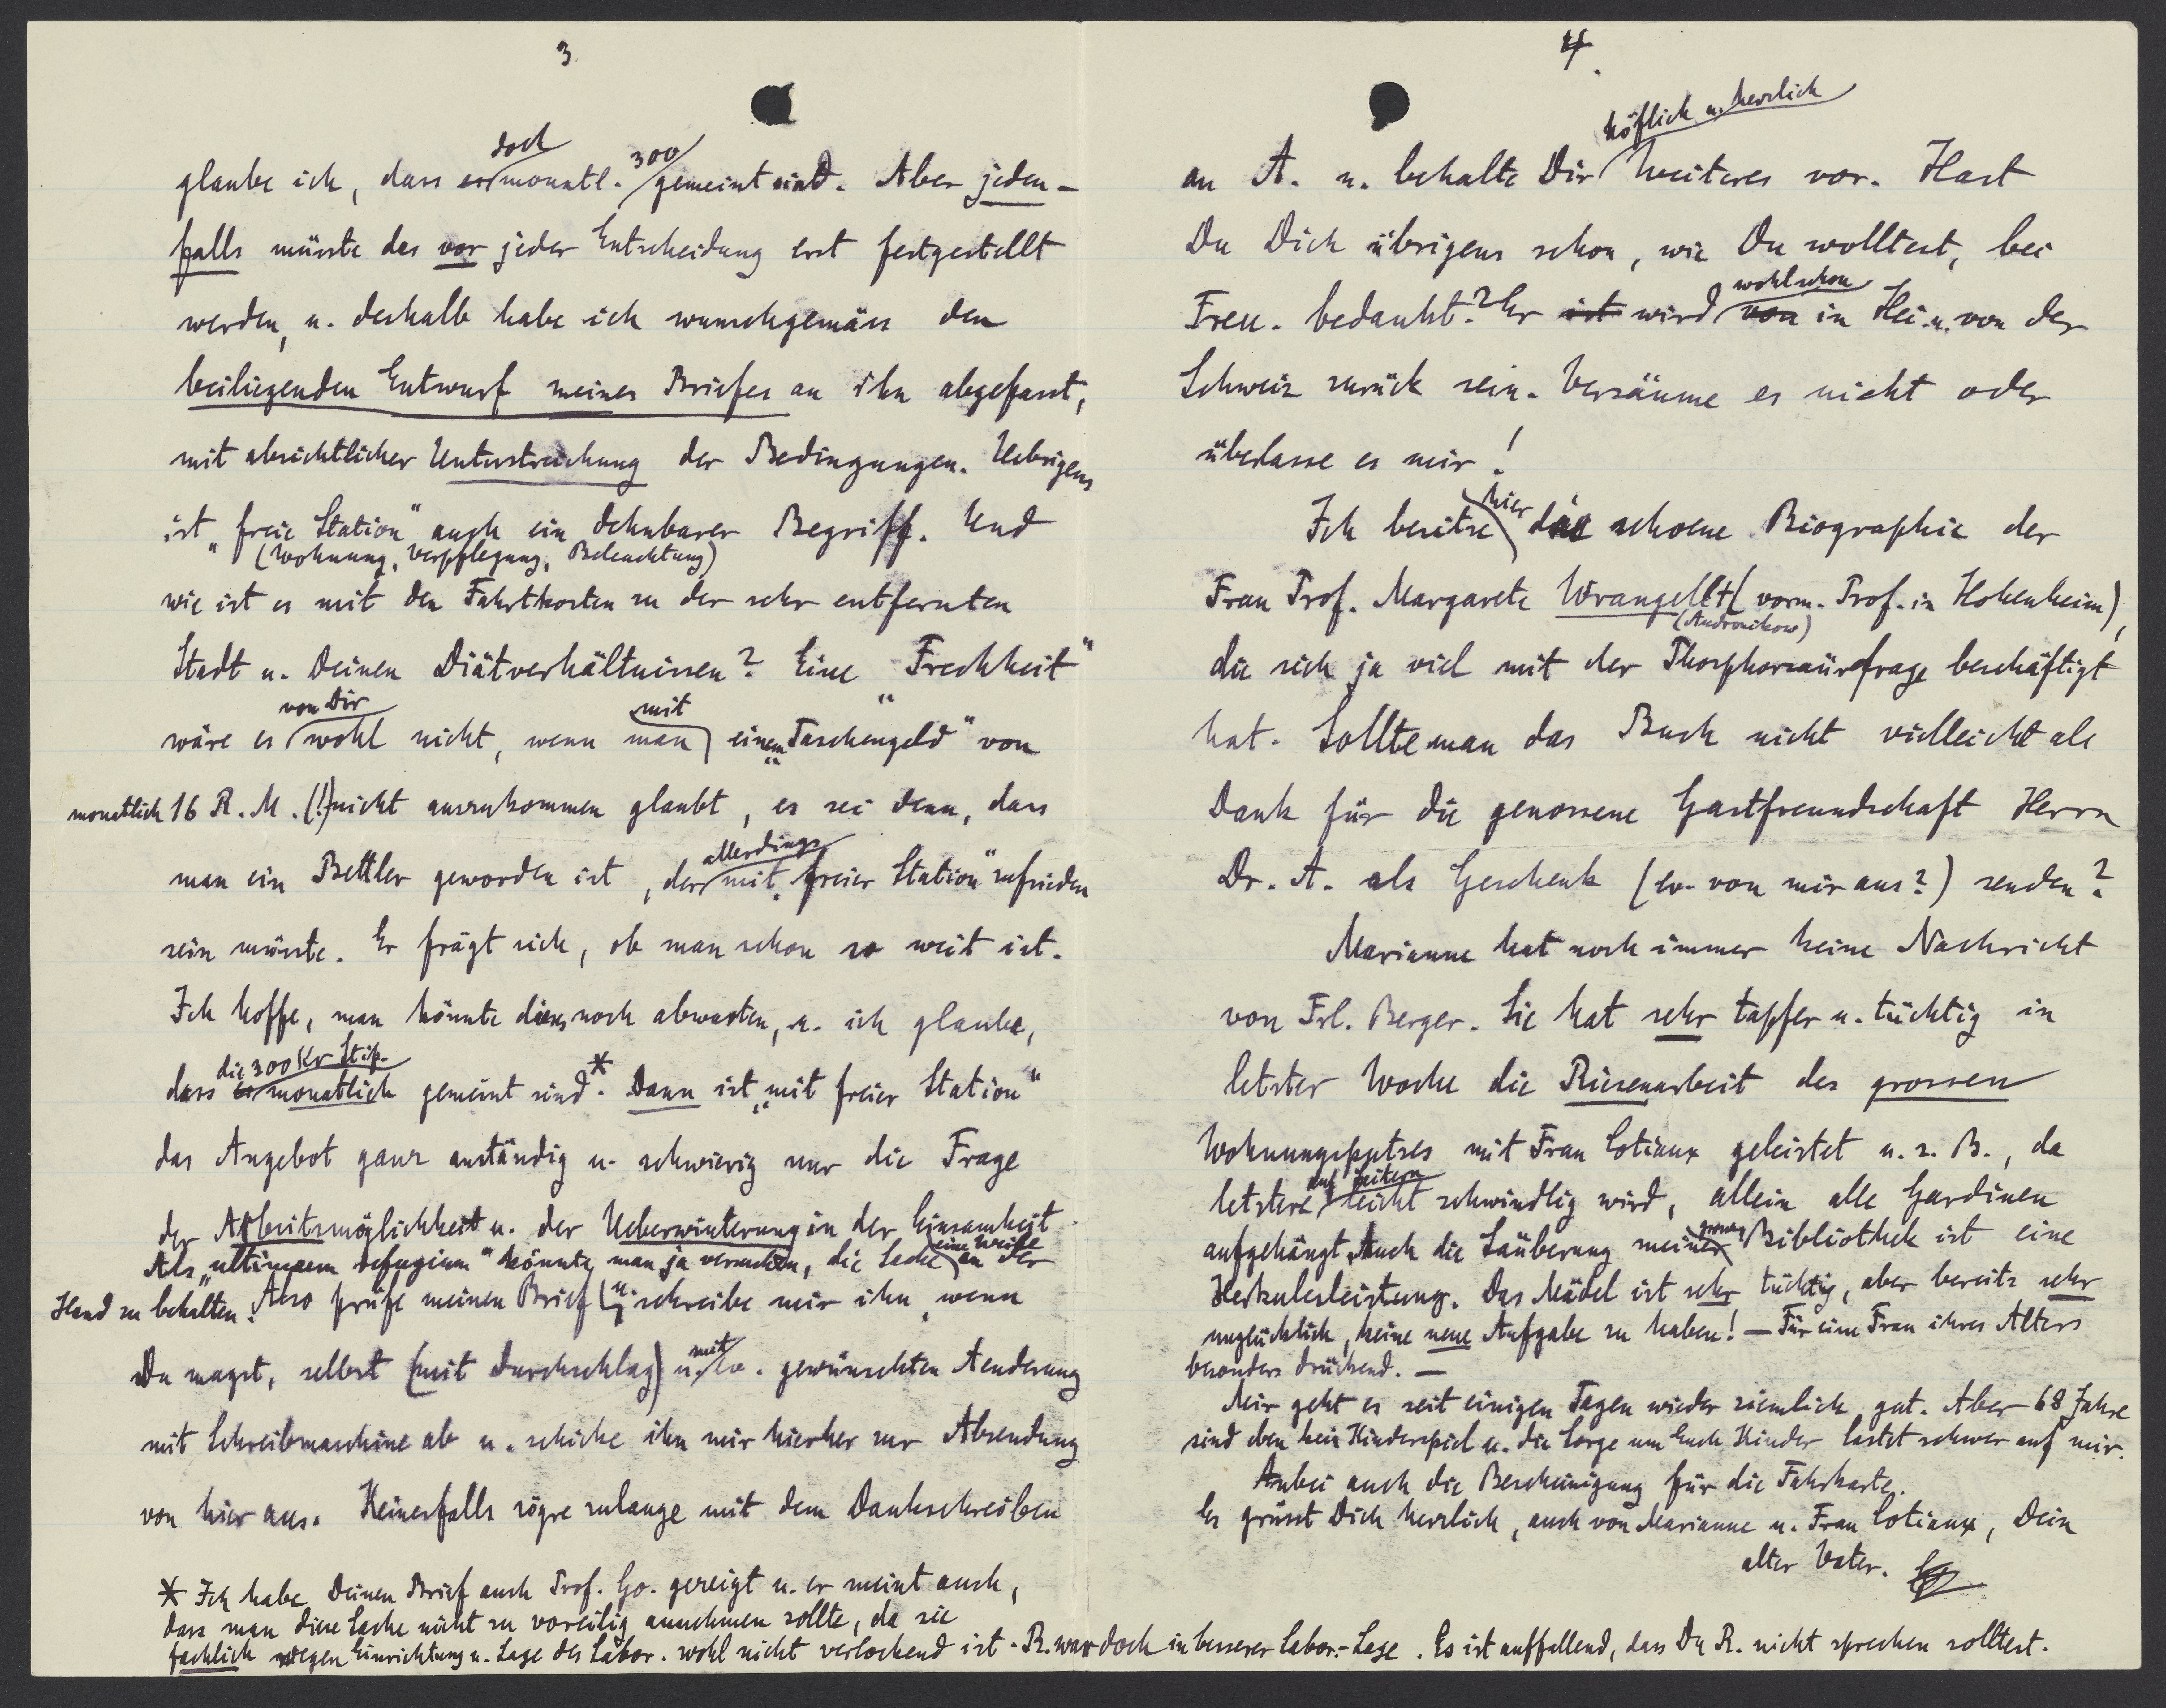 3
glaube ich, dass doch monatl. 300 gemeint sind. Aber jeden-
falls müsste das vor jeder Entscheidung erst festgestellt
werden, u. deshalb habe ich wunschgemäss den
beiliegenden Entwurf meines Briefes an ihn abgefasst,
mit absichtlicher Unterstreichung der Bedingungen. Uebrigens
ist „freie Station" auch ein dehnbarer Begriff. Und
(Wohnung, Verpflegung, Beleuchtung)
wie ist es mit den Fahrtkosten zu der sehr entfernten
Stadt u. Deinen Diätverhältnissen? Eine „Frechheit"
wäre es von Dir wohl nicht, wenn man mit einem „Taschengeld" von
monatlich 16 R.M. (!) nicht auszukommen glaubt, es sei denn, dass
man ein Bettler geworden ist, der allerdings mit „freier Station" zufrieden
sein müsste. Er frägt sich, ob man schon so weit ist.
Ich hoffe, man könnte dieses noch abwarten, u. ich glaube,
dass die 300 Kr Stip. monatlich gemeint sind.* Dann ist „mit freier Station"
das Angebot ganz anständig u. schwierig nur die Frage
der Arbeitsmöglichkeit u. der Ueberwinterung in der Einsamkeit.
Als „ultimum refugium" könnte man ja versuchen, die Sache eine Weile an der
Hand zu behalten. Also prüfe meinen Brief u. schreibe mir ihn, wenn
Du magst, selbst (mit Durchschlag) u. mit ev. gewünschten Aenderung
mit Schreibmaschine ab u. schicke ihn mir hierher zur Absendung
von hier aus. Keinesfalls zögre zulange mit dem Dankschreiben
* Ich habe Deinen Brief auch Prof. Go. gezeigt u. er meint auch,
dass man diese Sache nicht zu voreilig annehmen sollte, da sie
fachlich wegen Einrichtung u. Lage des Labor. wohl nicht verlockend ist. R. war doch in besserer Labor.-Lage. Es ist auffallend, dass Du R. nicht sprechen solltest.
4.
an A. u. behalte Dir höflich u. herzlich Weiteres vor. Hast
Du Dich übrigens schon, wie Du wolltest, bei
Freu. bedankt? Er ist wird wohl schon von in Hei. u. von der
Schweiz zurück sein. Versäume es nicht oder
überlasse es mir!
Ich besitze hier die schoene Biographie der
Frau Prof. Margarete Wrangell † (vorm. Prof. in Hohenheim),
(Andronikow)
die sich ja viel mit der Phosphorsäurefrage beschäftigt
hat. Sollte man das Buch nicht vielleicht als
Dank für die genossene Gastfreundschaft Herrn
Dr. A. als Geschenk (ev. von mir aus?) senden?
Marianne hat noch immer keine Nachricht
von Frl. Berger. Sie hat sehr tapfer u. tüchtig in
letzter Woche die Riesenarbeit des grossen
Wohnungsputzes mit Frau Cotiaux geleistet u. z. B., da
letztere auf Leitern leicht schwindlig wird, allein alle Gardinen
aufgehängt. Auch die Säuberung meiner grossen Bibliothek ist eine
Herkulesleistung. Das Mädel ist sehr tüchtig, aber bereits sehr
unglücklich, keine neue Aufgabe zu haben! — Für eine Frau ihres Alters
besonders drückend. —
Mir geht es seit einigen Tagen wieder ziemlich gut. Aber 68 Jahre
sind eben kein Kinderspiel u. die Sorge um Euch Kinder lastet schwer auf mir.
Anbei auch die Bescheinigung für die Fahrkarte.
Es grüsst Dich herzlich, auch von Marianne u. Frau Cotiaux, Dein
alter Vater.